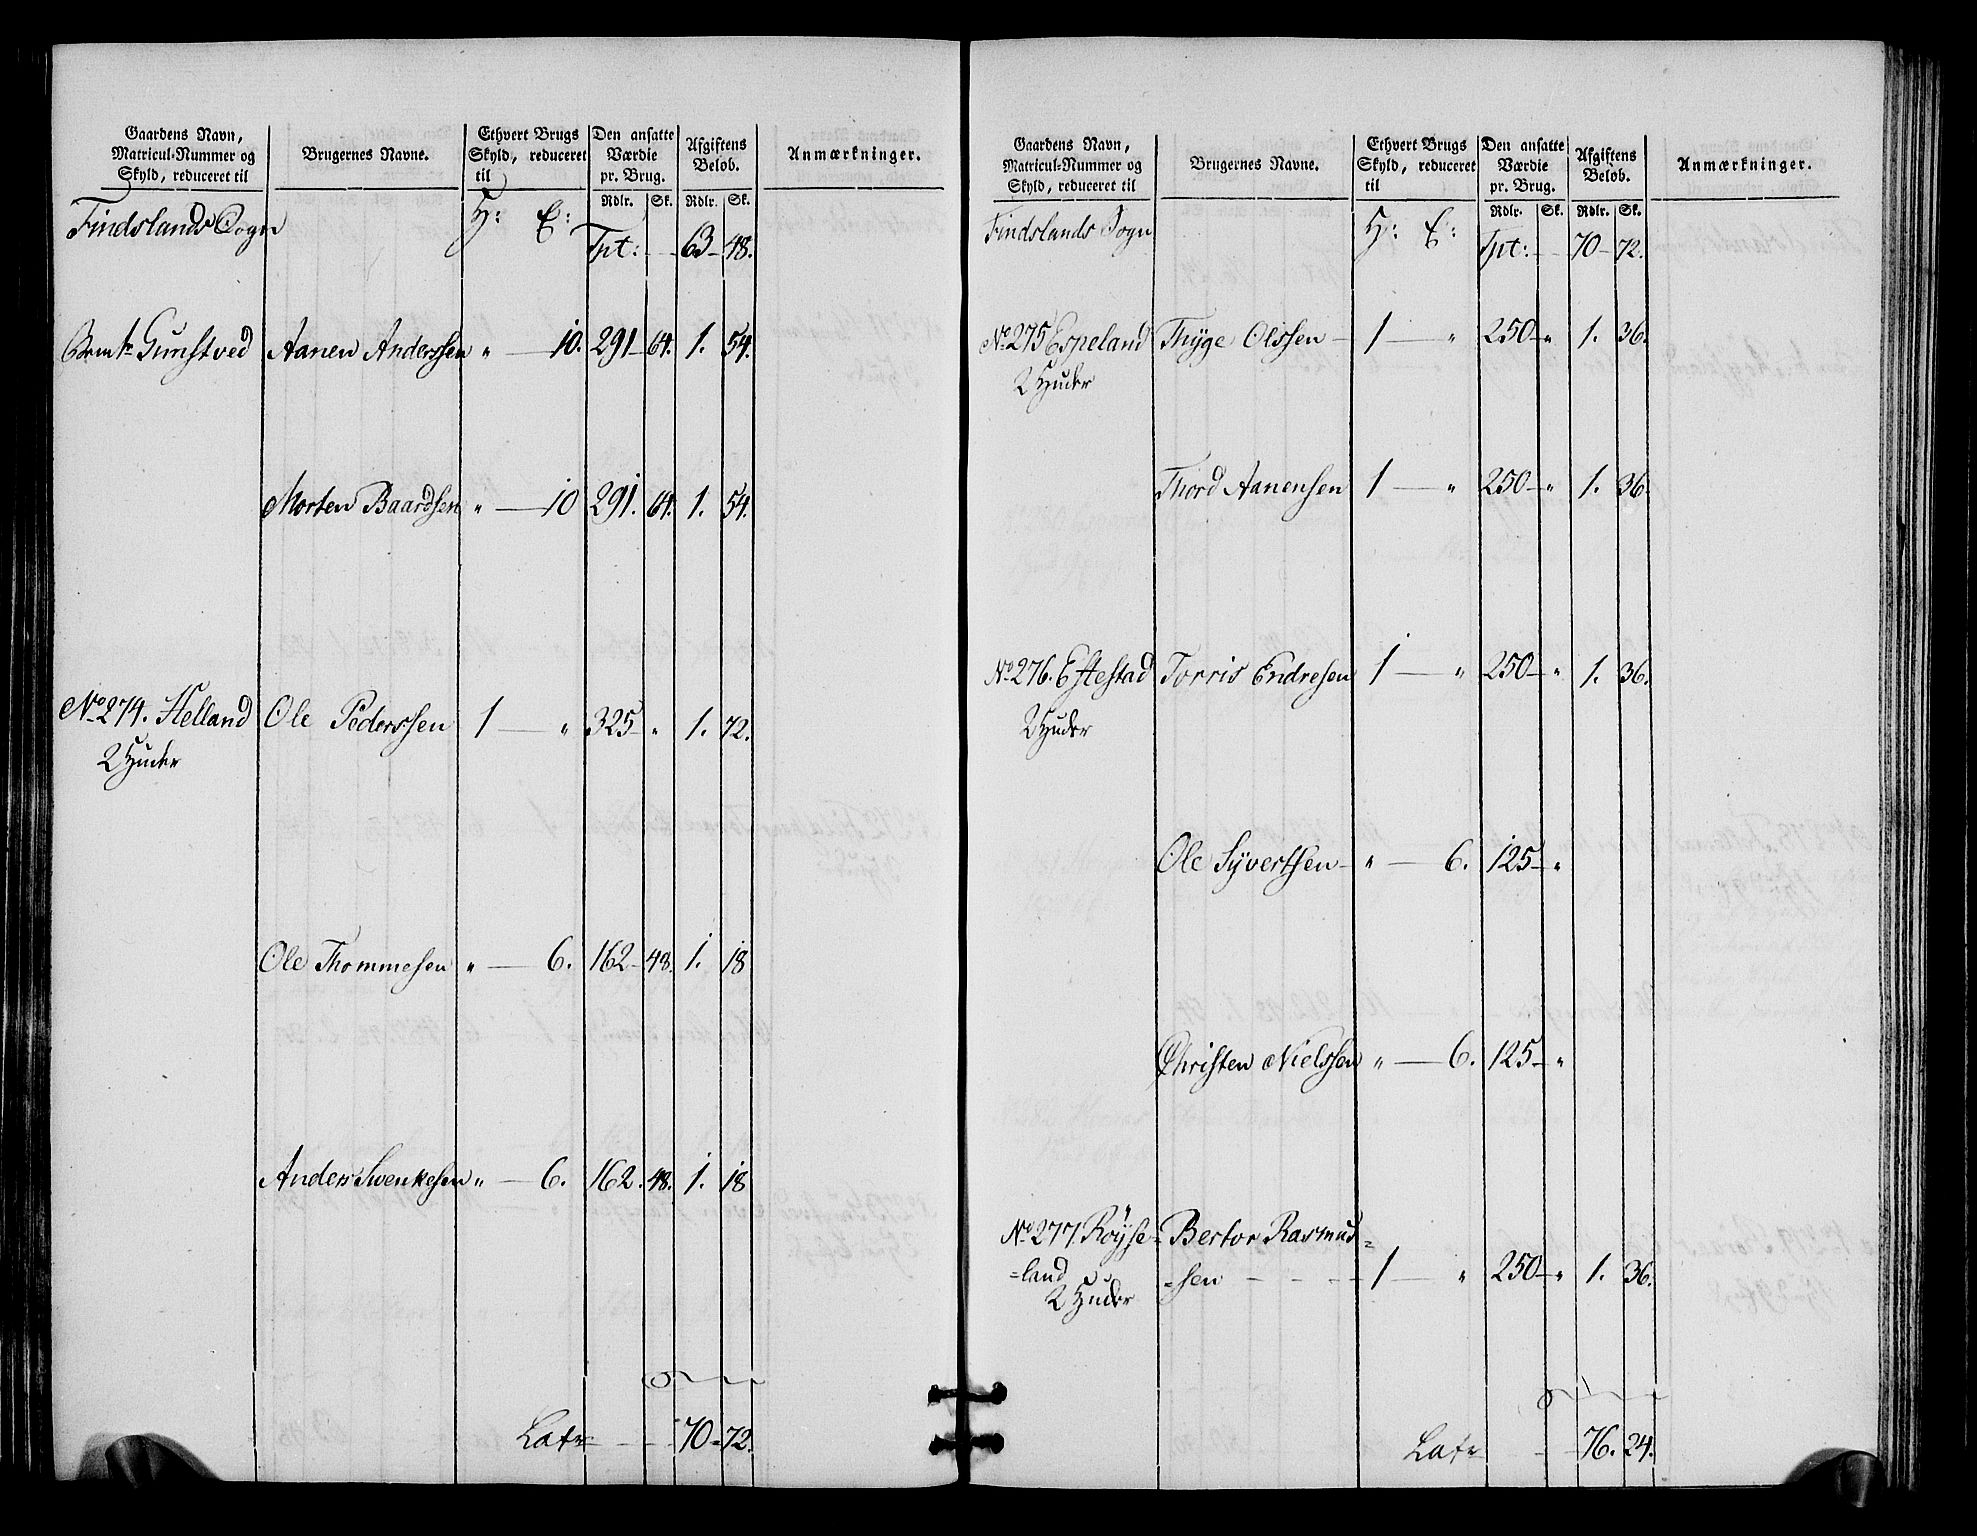 Gaardens Navn, Matricul-Nummer og Skyld, reduceret til | Brugernes Navne. | Ethvert Brugs Skyld, reduceret til | Den ansatte Værdie pr. Brug. | Afgiftens Beløb. | Anmærkninger.
Rdlr. | Sk. | Rdlr. | Sk.
Findslands Sogn | H: | E: | Tpt: | 63 | 48.
Gunstved | Aanen Anderssen | " | 10. | 291 | 64. | 1. | 54.
Morten Baardsen | " | 10 | 291. | 64. | 1. | 54.
No 274. Helland | Ole Pederssen | 1 | " | 325 | " | 1. | 72.
2 Huder
Ole Thommesen | " | 6. | 162 | 48. | 1. | 18
Anders Swenkesen | " | 6. | 162. | 48. | 1. | 18
Latr | 70 | 72.
Gaardens Navn, Matricul-Nummer og Skyld, reduceret til | Brugernes Navne. | Ethvert Brugs Skyld, reduceret til | Den ansatte Værdie pr. Brug. | Afgiftens Beløb. | Anmærkninger.
Rdlr. | Sk. | Rdlr. | Sk.
Findslands Sogn | H: | E: | Tpt: | 70 | 72.
No 275 Espeland | Thyge Olssen | 1 | " | 250 | " | 1. | 36.
2 Huder
Thord Aanensen | 1 | " | 250 | " | 1. | 36.
No 276. Eftestad | Torris Endresen | 1 | " | 250 | " | 1. | 36.
2 Huder
Ole Syvertsen | " | 6. | 125 | "
Christen Nielssen | " | 6. | 125 | "
No 277. Röyse= | Bertor Rasmus=
=land | =sen | 1 | " | 250 | " | 1. | 36.
2 Huder
Latr | 76. | 24.